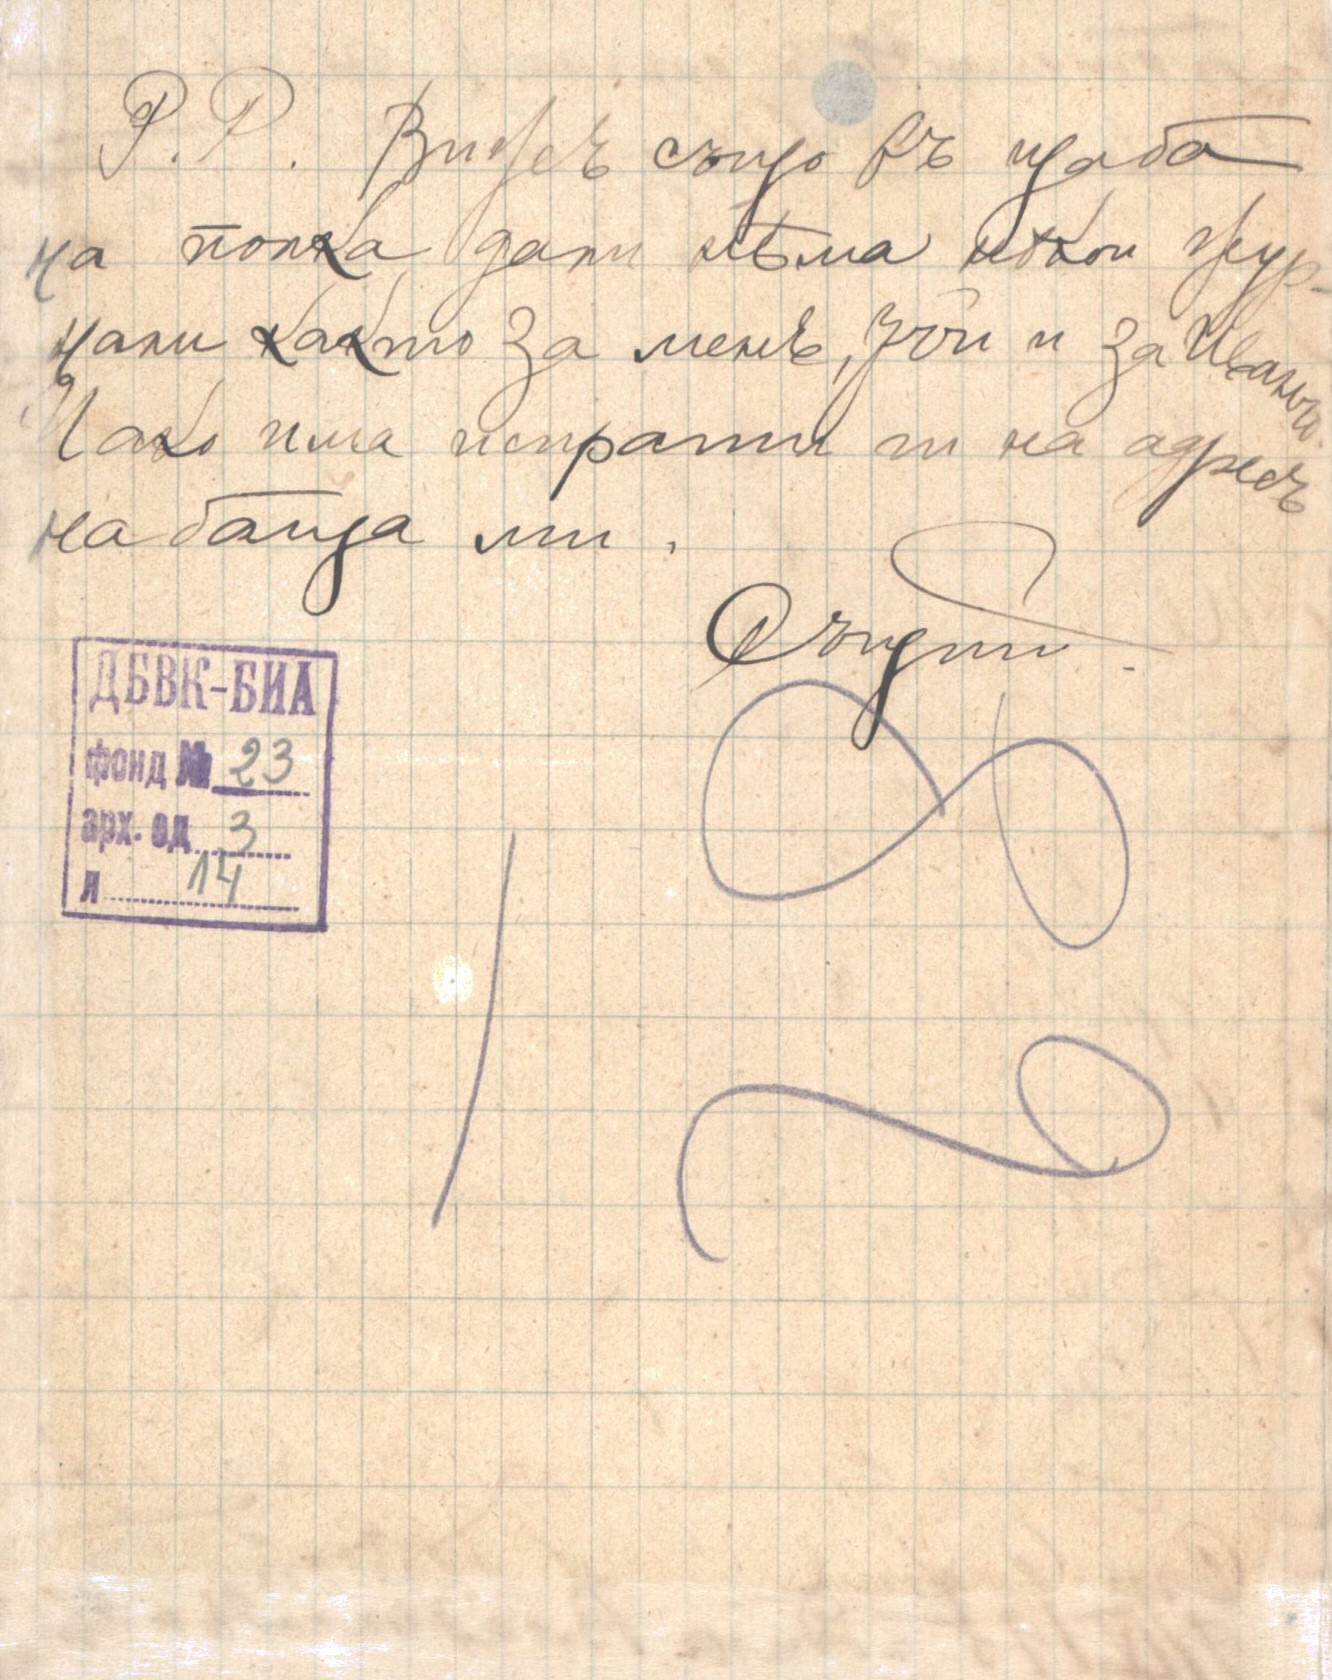 P. P. Вижъ също въ щаба
на полка дали нѣма нѣкои жур-
нали както за менъ, тъй и за Иванча.
Ако има испрати ги на адресъ
на баща ми.
Същий.
ДБВК-БИА
фонд № 23
арх. ед 3
л 14